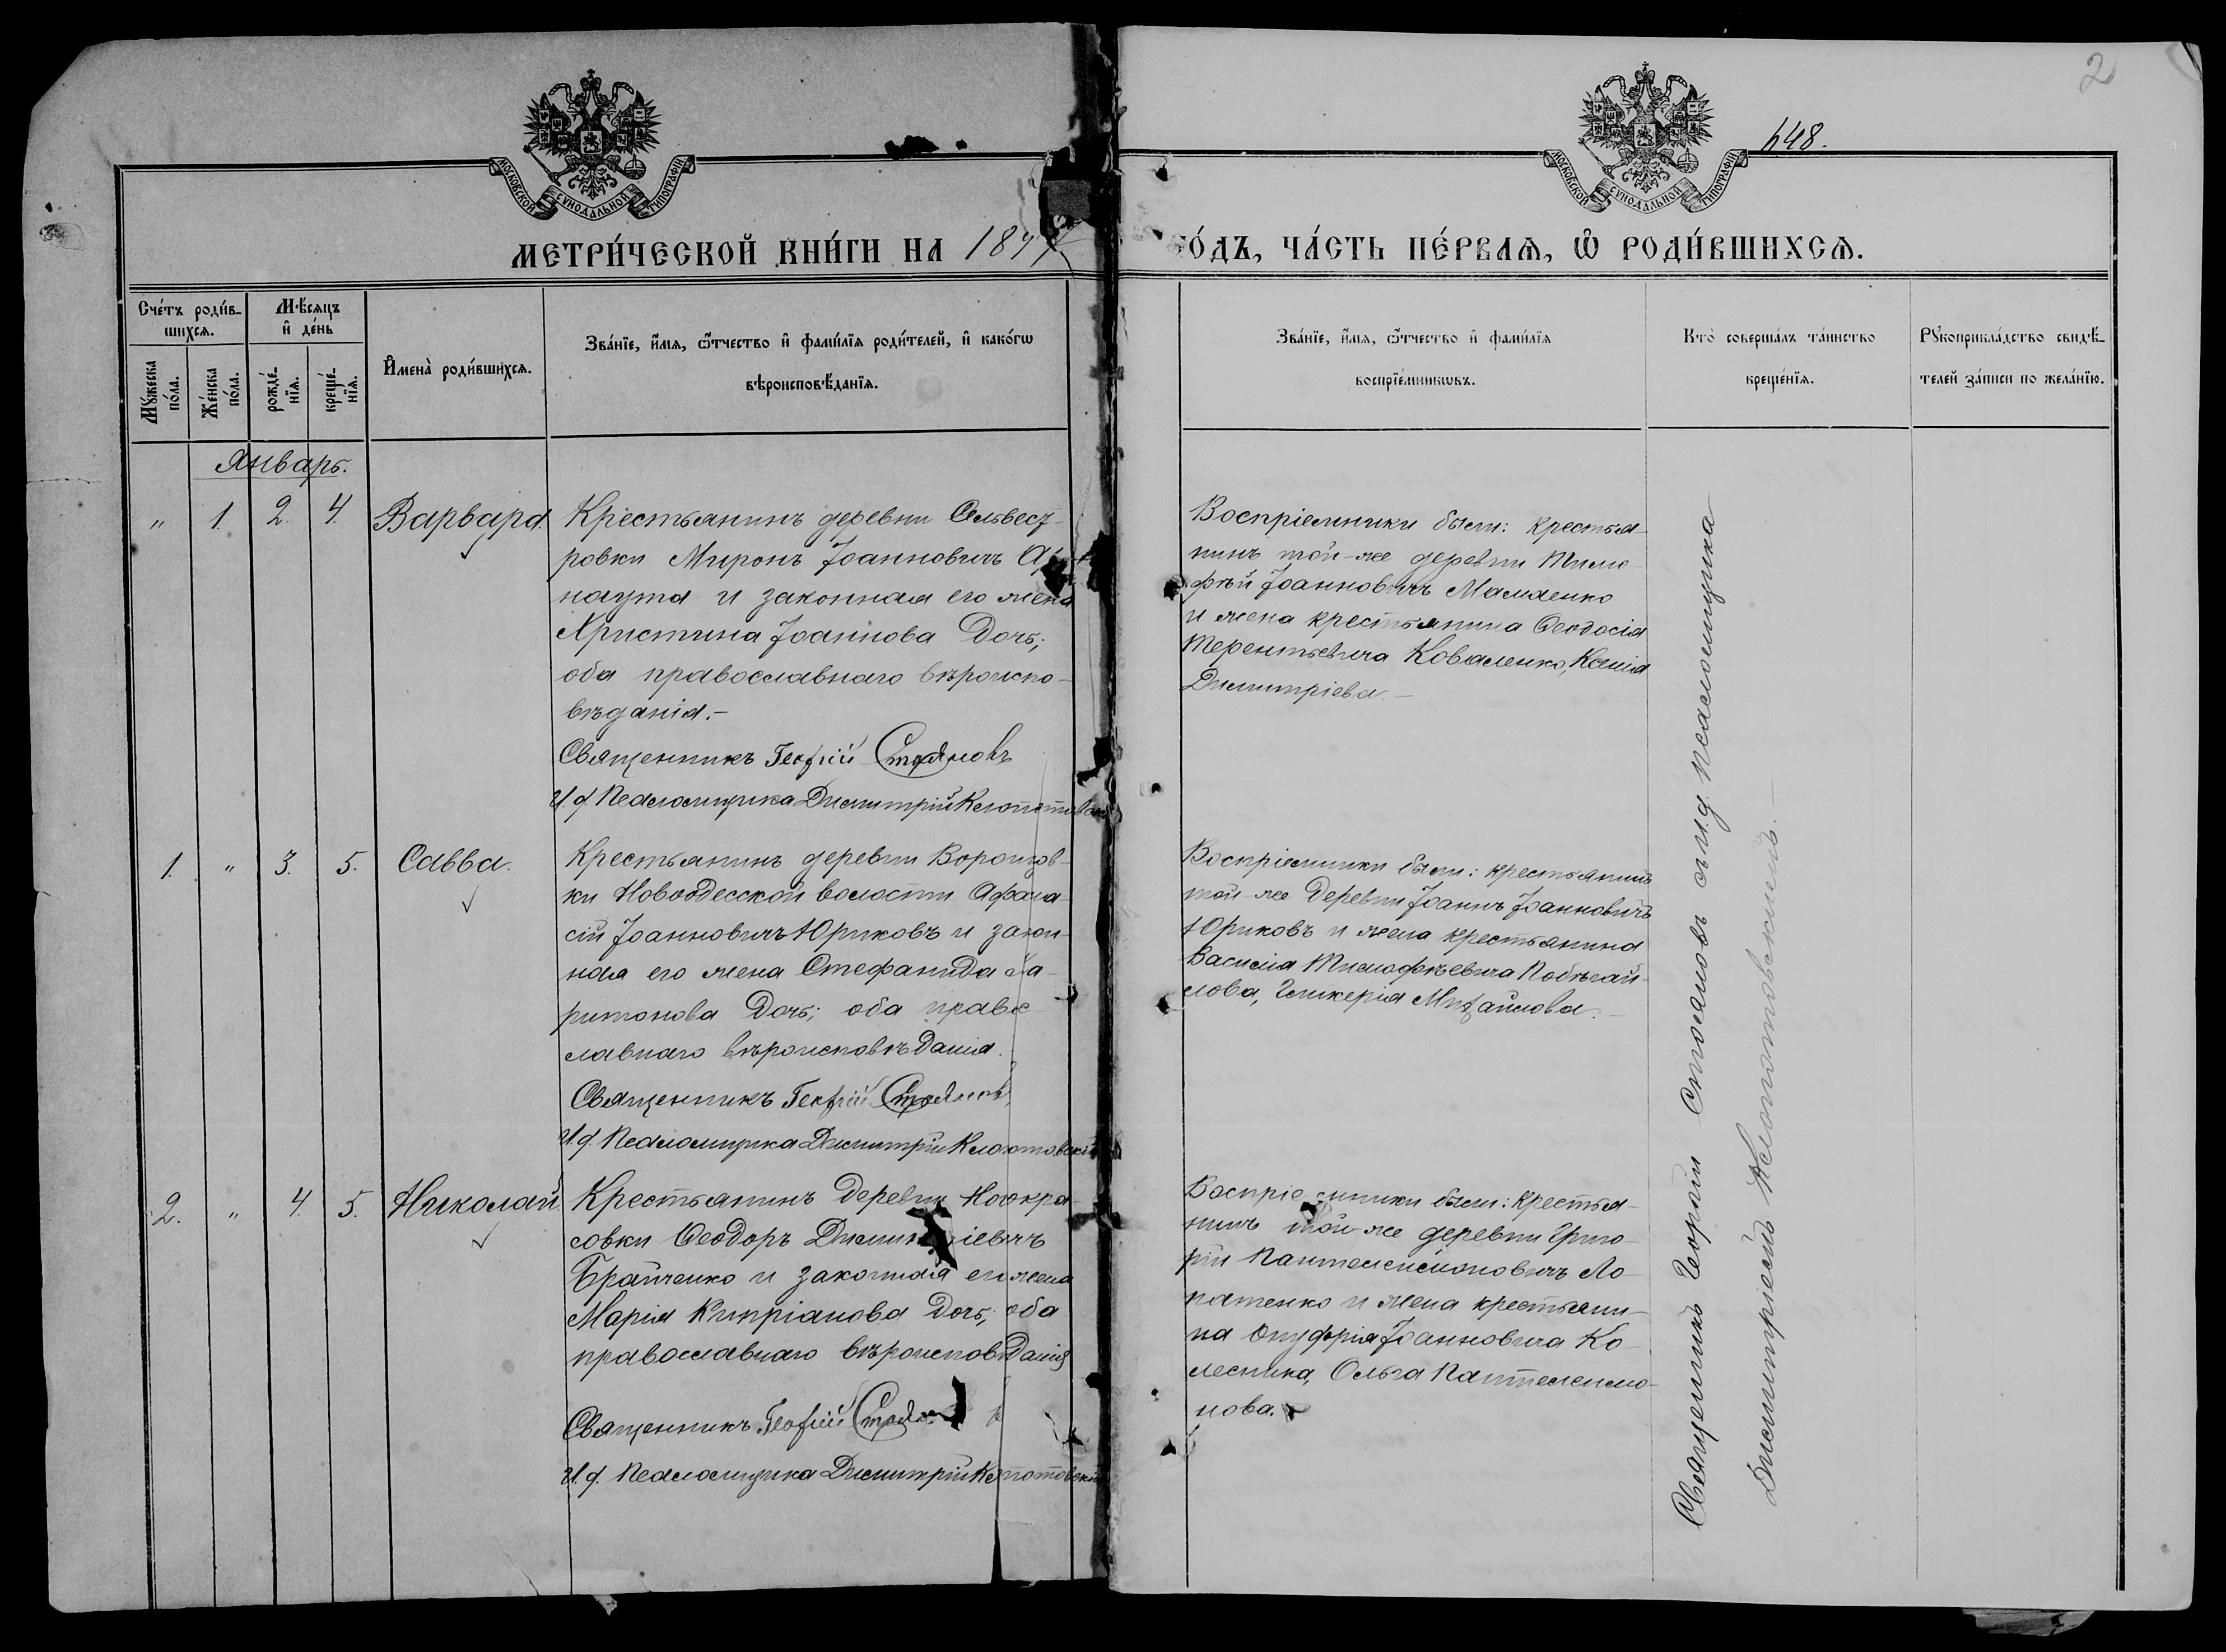 2
648.
МОСКОВСКОЙ СѴНОДАЛЬНОЙ ТИПОГРАФІИ
МОСКОВСКОЙ СѴНОДАЛЬНОЙ ТИПОГРАФІИ
МЕТРИ́ЧЕСКОЙ КНИ́ГИ НА 1877
ГО́ДЪ, ЧА́СТЬ ПЕ́РВАѦ, Ѡ РОДИ́ВШИХСѦ.
Сче́тъ роди́в-
шихсѧ.
Мѣ́сѧцъ
и҆ де́нь
Мꙋ́жеска
по́ла.
Же́нска
по́ла.
рожде́-
нїѧ.
креще́-
нїѧ.
И҆мена̀ роди́вшихсѧ.
Зва́нїе, и҆́мѧ, ѻ҆́тчество и҆ фами́лїѧ роди́телей, и҆ како́гѡ
вѣроисповѣ́данїѧ.
Зва́нїе, и҆́мѧ, ѻ҆́тчество и҆ фами́лїѧ
воспрїе́мникѡвъ.
Кто̀ соверша́лъ та́инство
креще́нїѧ.
Рꙋкоприкла́дство свидѣ́-
телей за́писи по жела́нїю.
Январь.
" 1. 2. 4. Варвара.
Крестьянинъ деревни Сельвест-
ровки Миронъ Іоанновичъ Ар-
наута и законная его жена
Христина Іоаннова дочь;
оба православнаго вѣроиспо-
вѣданія.–
Священникъ Георгій Стояновъ
И. д. Псаломщика Димитрій Клопотовскій
Воспріемники были: крестья-
нинъ той-же деревни Тимо-
фѣй Іоанновичъ Мамаенко
и жена крестьянина Ѳеодосія
Терентьевича Коваленко, Ксенія
Димитріева.–
1. " 3. 5. Савва.
Крестьянинъ деревни Воронцов-
ки Новоодесской волости Афана-
сій Іоанновичъ Юриковъ и закон-
ная его жена Стефанида Ха-
ритонова дочь; оба право-
славнаго вѣроисповѣданія.
Священникъ Георгій Стояновъ
И. д. Псаломщика Димитрій Клопотовскій
Воспріемники были: крестьянинъ
той же деревни Іоаннъ Іоанновичъ
Юриковъ и жена крестьянина
Василія Тимофѣевича Побѣгай-
лова, Гликерія Михайлова.–
2. " 4. 5. Николай
Крестьянинъ деревни Новокра-
совки Ѳеодоръ Димитріевичъ
Брайченко и законная его жена
Марія Кипріанова дочь; оба
православнаго вѣроисповѣданія
Священникъ Георгій Стоянов
И. д. Псаломщика Димитрій Клопотовскій
Воспріемники были: крестья-
нинъ той-же деревни Григо-
рій Пантелеимоновичъ Ло-
патенко и жена крестьяни-
на Онуфрія Іоанновича Ко-
лесника, Ольга Пантелеимо-
нова.
Священникъ Георгій Стояновъ съ и. д. псаломщика
Димитріемъ Клопотовскимъ.–